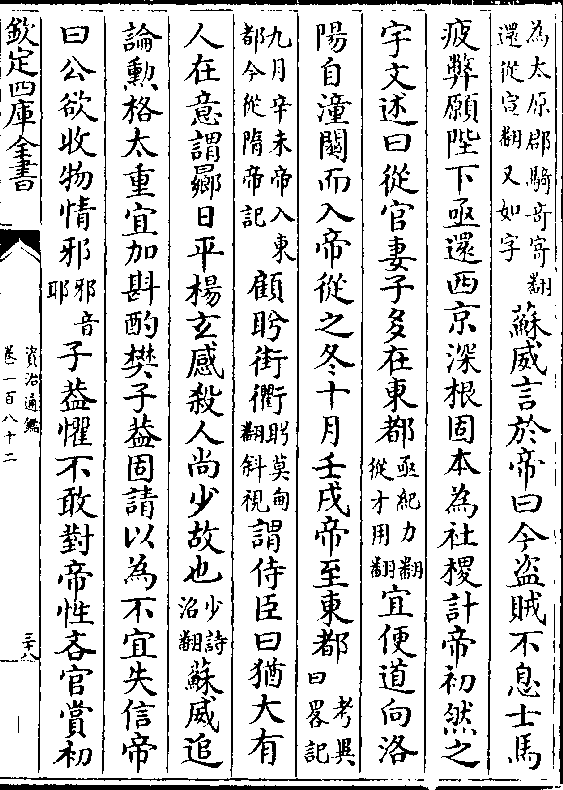 為太原郡騎奇寄翻
還從宣翻又如字
蘇威言於帝曰今盜賊不息士馬
疲弊願陛下亟還西京深根固本為社稷計帝初然之
宇文述曰從官妻子多在東都
亟紀力翻
從才用翻
宜便道向洛
陽自潼關而入帝從之冬十月壬戌帝至東都
考異
曰畧記
九月辛未帝入東
都今從隋帝記
顧眄街衢
眄莫甸
翻斜視
謂侍臣曰猶大有
人在意謂曏日平楊玄感殺人尚少故也
少詩
沼翻
蘇威追
論勲格太重宜加斟酌樊子葢固請以為不宜失信帝
曰公欲收物情邪
邪音
耶
子葢懼不敢對帝性吝官賞初
欽定四庫全書
資治通鑑
卷一百八十二
三十八